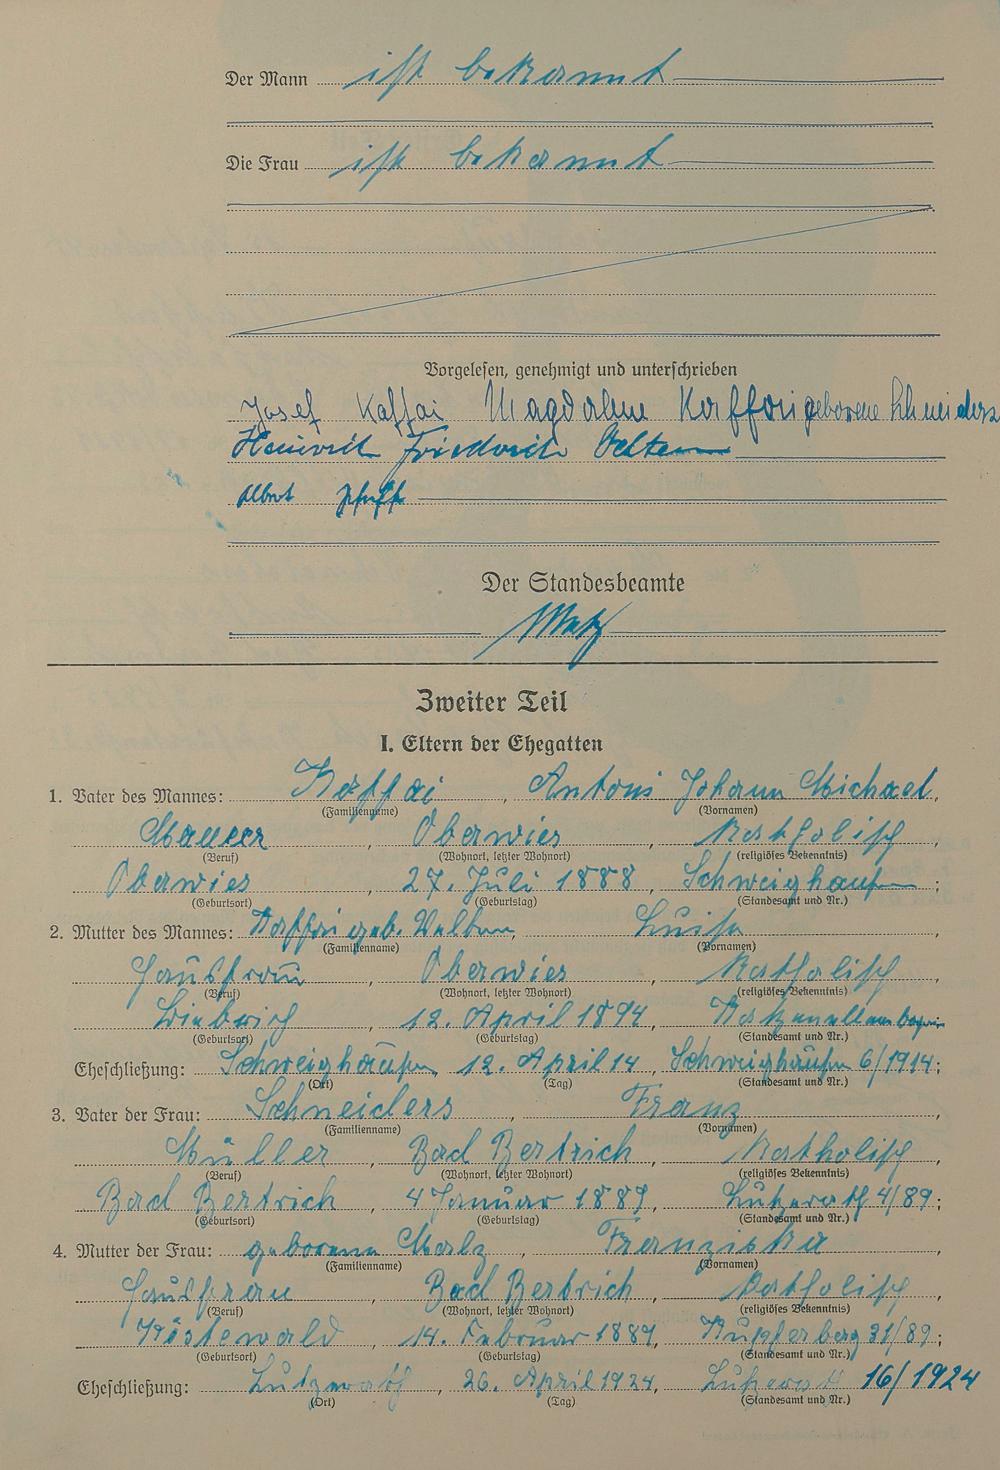 Der Mann ist bekannt
Die Frau ist bekannt
Vorgelesen, genehmigt und unterschrieben
Josef Kaffai Magdalene Kaffai geborene Schneiders
Heinrich Friedrich
Albert
Der Standesbeamte
Zweiter Teil
I. Eltern der Ehegatten
1. Vater des Mannes: Kaffai, Anton Johann Michael,
(Familienname) (Vornamen)
Maurer, Oberwies, Katholisch
(Beruf) (Wohnort, letzter Wohnort) (religiöses Bekenntnis)
Oberwies, 27. Juli 1888, Schweighausen;
(Geburtsort) (Geburtstag) (Standesamt und Nr.)
2. Mutter des Mannes: Kaffai geb., Luise,
(Familienname) (Vornamen)
Hausfrau, Oberwies, Katholisch
(Beruf) (Wohnort, letzter Wohnort) (religiöses Bekenntnis)
12. April 1894,
(Geburtsort) (Geburtstag) (Standesamt und Nr.)
Eheschließung: Schweighausen, 12. April 14, Schweighausen 6/1914;
(Ort) (Tag) (Standesamt und Nr.)
3. Vater der Frau: Schneiders, Franz,
(Familienname) (Vornamen)
Müller, Bad Bertrich, Katholisch
(Beruf) (Wohnort, letzter Wohnort) (religiöses Bekenntnis)
Bad Bertrich, 4 Januar 1889, Lutzerath 4/89;
(Geburtsort) (Geburtstag) (Standesamt und Nr.)
4. Mutter der Frau: geborene, Franziska,
(Familienname) (Vornamen)
Hausfrau, Bad Bertrich, Katholisch
(Beruf) (Wohnort, letzter Wohnort) (religiöses Bekenntnis)
14. Februar 1889, 31/89;
(Geburtsort) (Geburtstag) (Standesamt und Nr.)
Eheschließung: Lutzerath, 26. April 1924, Lutzerath 16/1924
(Ort) (Tag) (Standesamt und Nr.)